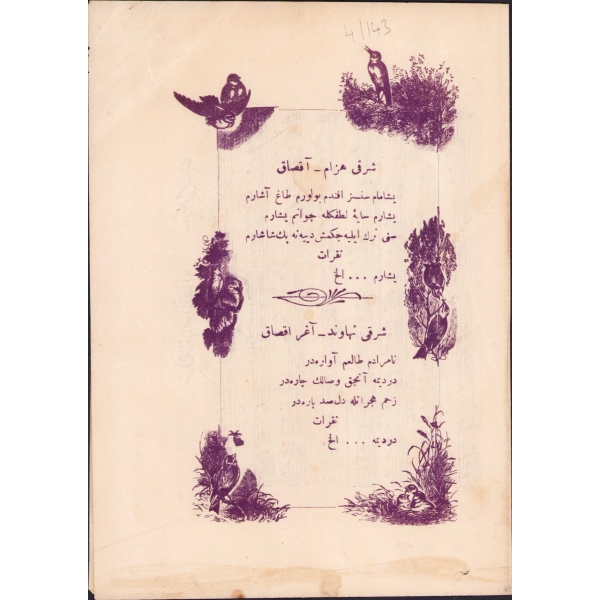 4/143
شرقی هزام ـ آقصاق
یشامام سنسز افندم بولورم طاغ آشارم
یشارم سایۀ لطفکله جوانم یشارم
سنی ترك ایلیه جکمش دییه نه پك شاشارم
نقرات
یشارم ... الخ
شرقی نهاوند ـ آغر اقصاق
نامرادم طالعم آواره در
دردیمه آنجق وصالك چاره در
زخم هجرانله دل صد پاره در
نقرات
دردیمه ... الخ